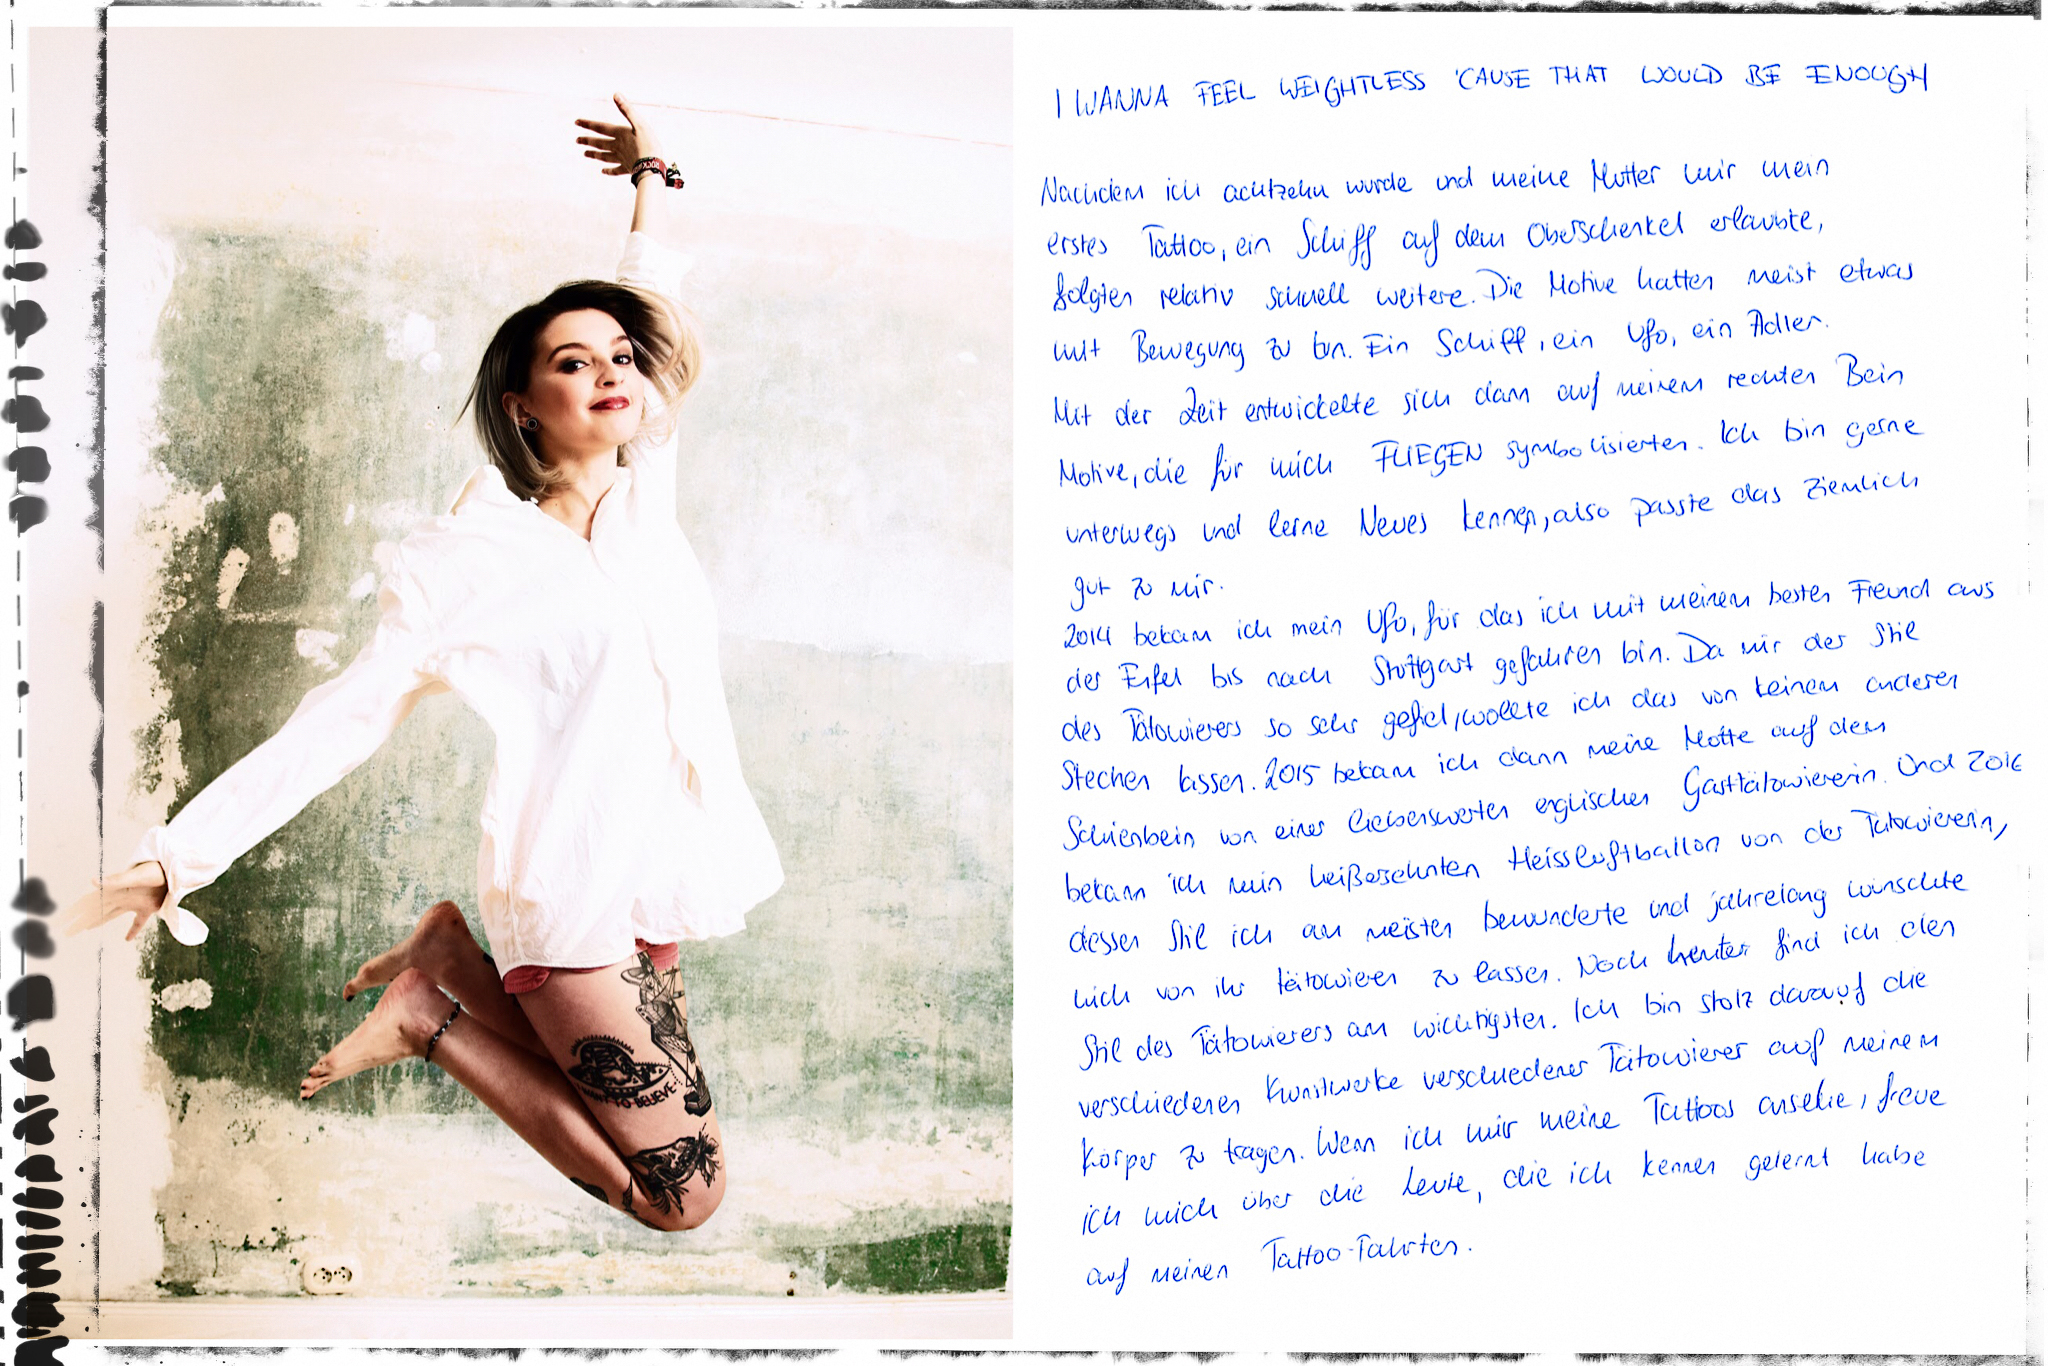 I WANNA FEEL WEIGHTLESS 'CAUSE THAT WOULD BE ENOUGH
Nachdem ich achtzehn wurde und meine Mutter mir mein
erstes Tattoo, ein Schiff auf dem Oberschenkel erlaubte,
folgten relativ schnell weitere. Die Motive hatten meist etwas
mit Bewegung zu tun. Ein Schiff, ein Ufo, ein Adler.
Mit der Zeit entwickelte sich dann auf meinem rechten Bein
Motive, die für mich FLIEGEN symbolisierten. Ich bin gerne
unterwegs und lerne Neues kennen, also passte das ziemlich
gut zu mir.
2014 bekam ich mein Ufo, für das ich mit meinem besten Freund aus
der Eifel bis nach Stuttgart gefahren bin. Da mir der Stil
des Tätowierers so sehr gefiel, wollte ich das von keinem anderen
stechen lassen. 2015 bekam ich dann meine Motte auf dem
Schienbein von einer liebenswerten englischen Gasttätowiererin. Und 2016
bekam ich mein heißersehnten Heissluftballon von der Tätowiererin,
dessen Stil ich am meisten bewunderte und jahrelang wünschte
mich von ihr tätowieren zu lassen. Noch heute find ich den
Stil des Tätowierers am wichtigsten. Ich bin stolz darauf die
verschiedenen Kunstwerke verschiedener Tätowierer auf meinem
Körper zu tragen. Wenn ich mir meine Tattoos ansehe, freue
ich mich über die Leute, die ich kennen gelernt habe
auf meinen Tattoo-Fahrten.
TO BELIEVE